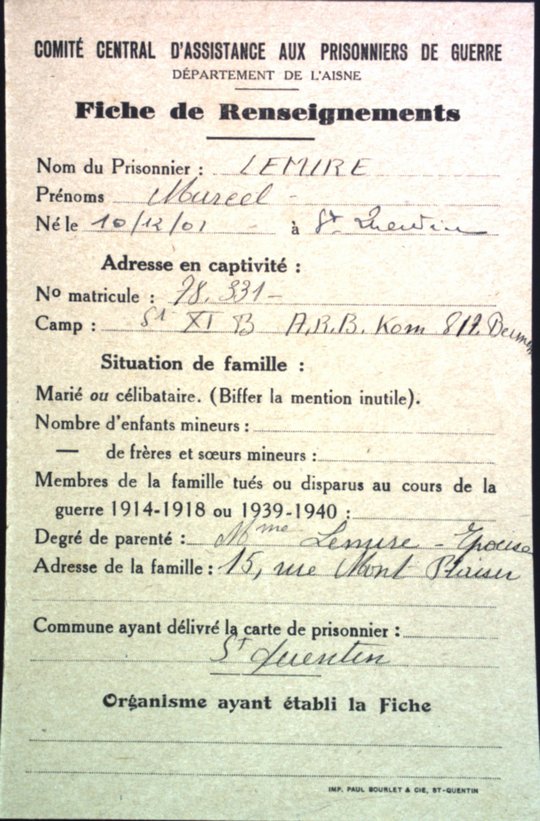 COMITÉ CENTRAL D'ASSISTANCE AUX PRISONNIERS DE GUERRE
DÉPARTEMENT DE L'AISNE
Fiche de Renseignements
Nom du Prisonnier : LEMIRE
Prénoms Marcel -
Né le 10/12/01 à St Quentin
Adresse en captivité :
No matricule : 78.331 -
Camp : St XI B A.R.B. Kom 817.
Situation de famille :
Marié ou célibataire. (Biffer la mention inutile).
Nombre d'enfants mineurs :
— de frères et sœurs mineurs :
Membres de la famille tués ou disparus au cours de la
guerre 1914-1918 ou 1939-1940 :
Degré de parenté : Mme Lemire - Epouse
Adresse de la famille : 15, rue Mont Plaisir
Commune ayant délivré la carte de prisonnier :
St Quentin
Organisme ayant établi la Fiche
IMP. PAUL BOURLET & CIE, ST-QUENTIN